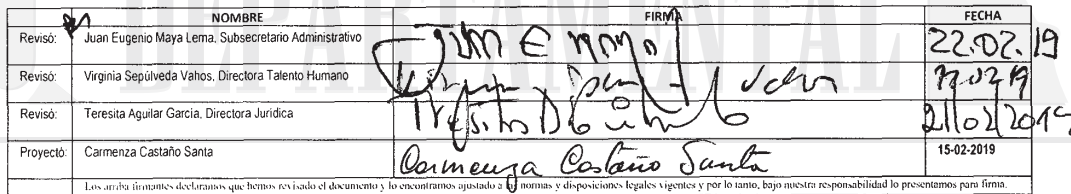 DEPARTAMENTAL
NOMBRE FIRMA FECHA
Revisó: Juan Eugenio Maya Lema, Subsecretario Administrativo Juan E Maya 22.02.19
Revisó: Virginia Sepúlveda Vahos, Directora Talento Humano
Revisó: Teresita Aguilar Garcia, Directora Jurídica 21/02/2019
Proyectó: Carmenza Castaño Santa Carmenza Castaño Santa 15-02-2019
Los arriba firmantes declaramos que hemos revisado el documento y lo encontramos ajustado a las normas y disposiciones legales vigentes y por lo tanto, bajo nuestra responsabilidad lo presentamos para firma.